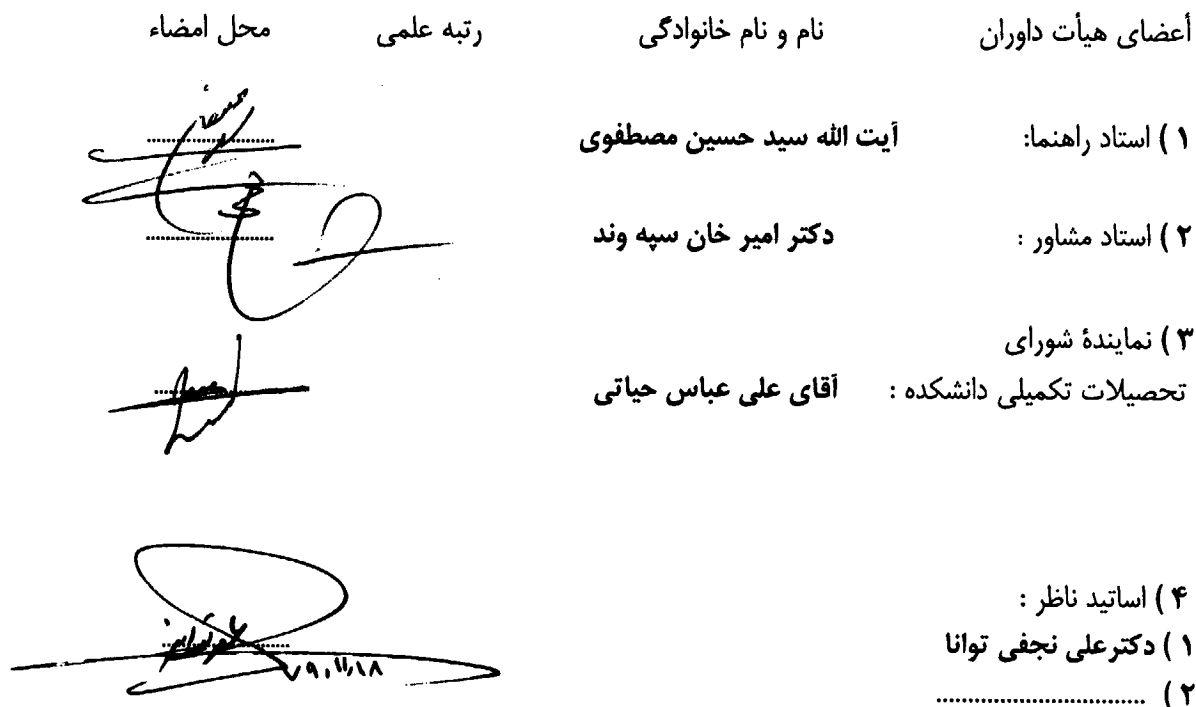 أعضای هیأت داوران نام و نام خانوادگی رتبه علمی محل امضاء
۱ ) استاد راهنما: آیت الله سید حسین مصطفوی ........................
۲ ) استاد مشاور : دکتر امیر خان سپه وند ........................
۳ ) نمایندهٔ شورای
تحصیلات تکمیلی دانشکده : آقای علی عباس حیاتی
۴ ) اساتید ناظر :
۱ ) دکترعلی نجفی توانا
۷۹،۱۱،۱۸
۲ ) ................................